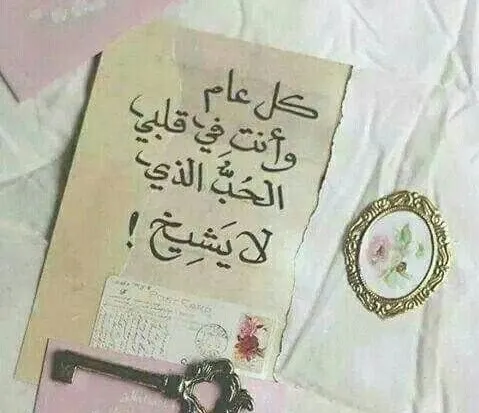 كل عام
وأنت في قلبي
الحُبُّ الذي
لا يَشِيخ !
POST CARD